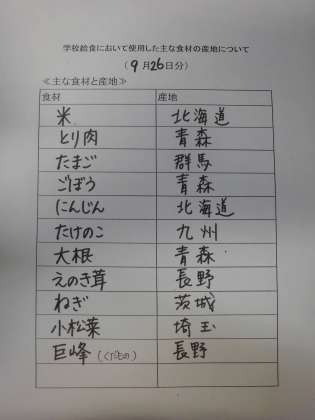 学校給食において使用した主な食材の産地について
(9月26日分)
≪主な食材と産地≫
食材 産地
米 北海道
とり肉 青森
たまご 群馬
ごぼう 青森
にんじん 北海道
たけのこ 九州
大根 青森
えのき茸 長野
ねぎ 茨城
小松菜 埼玉
巨峰(くだもの) 長野